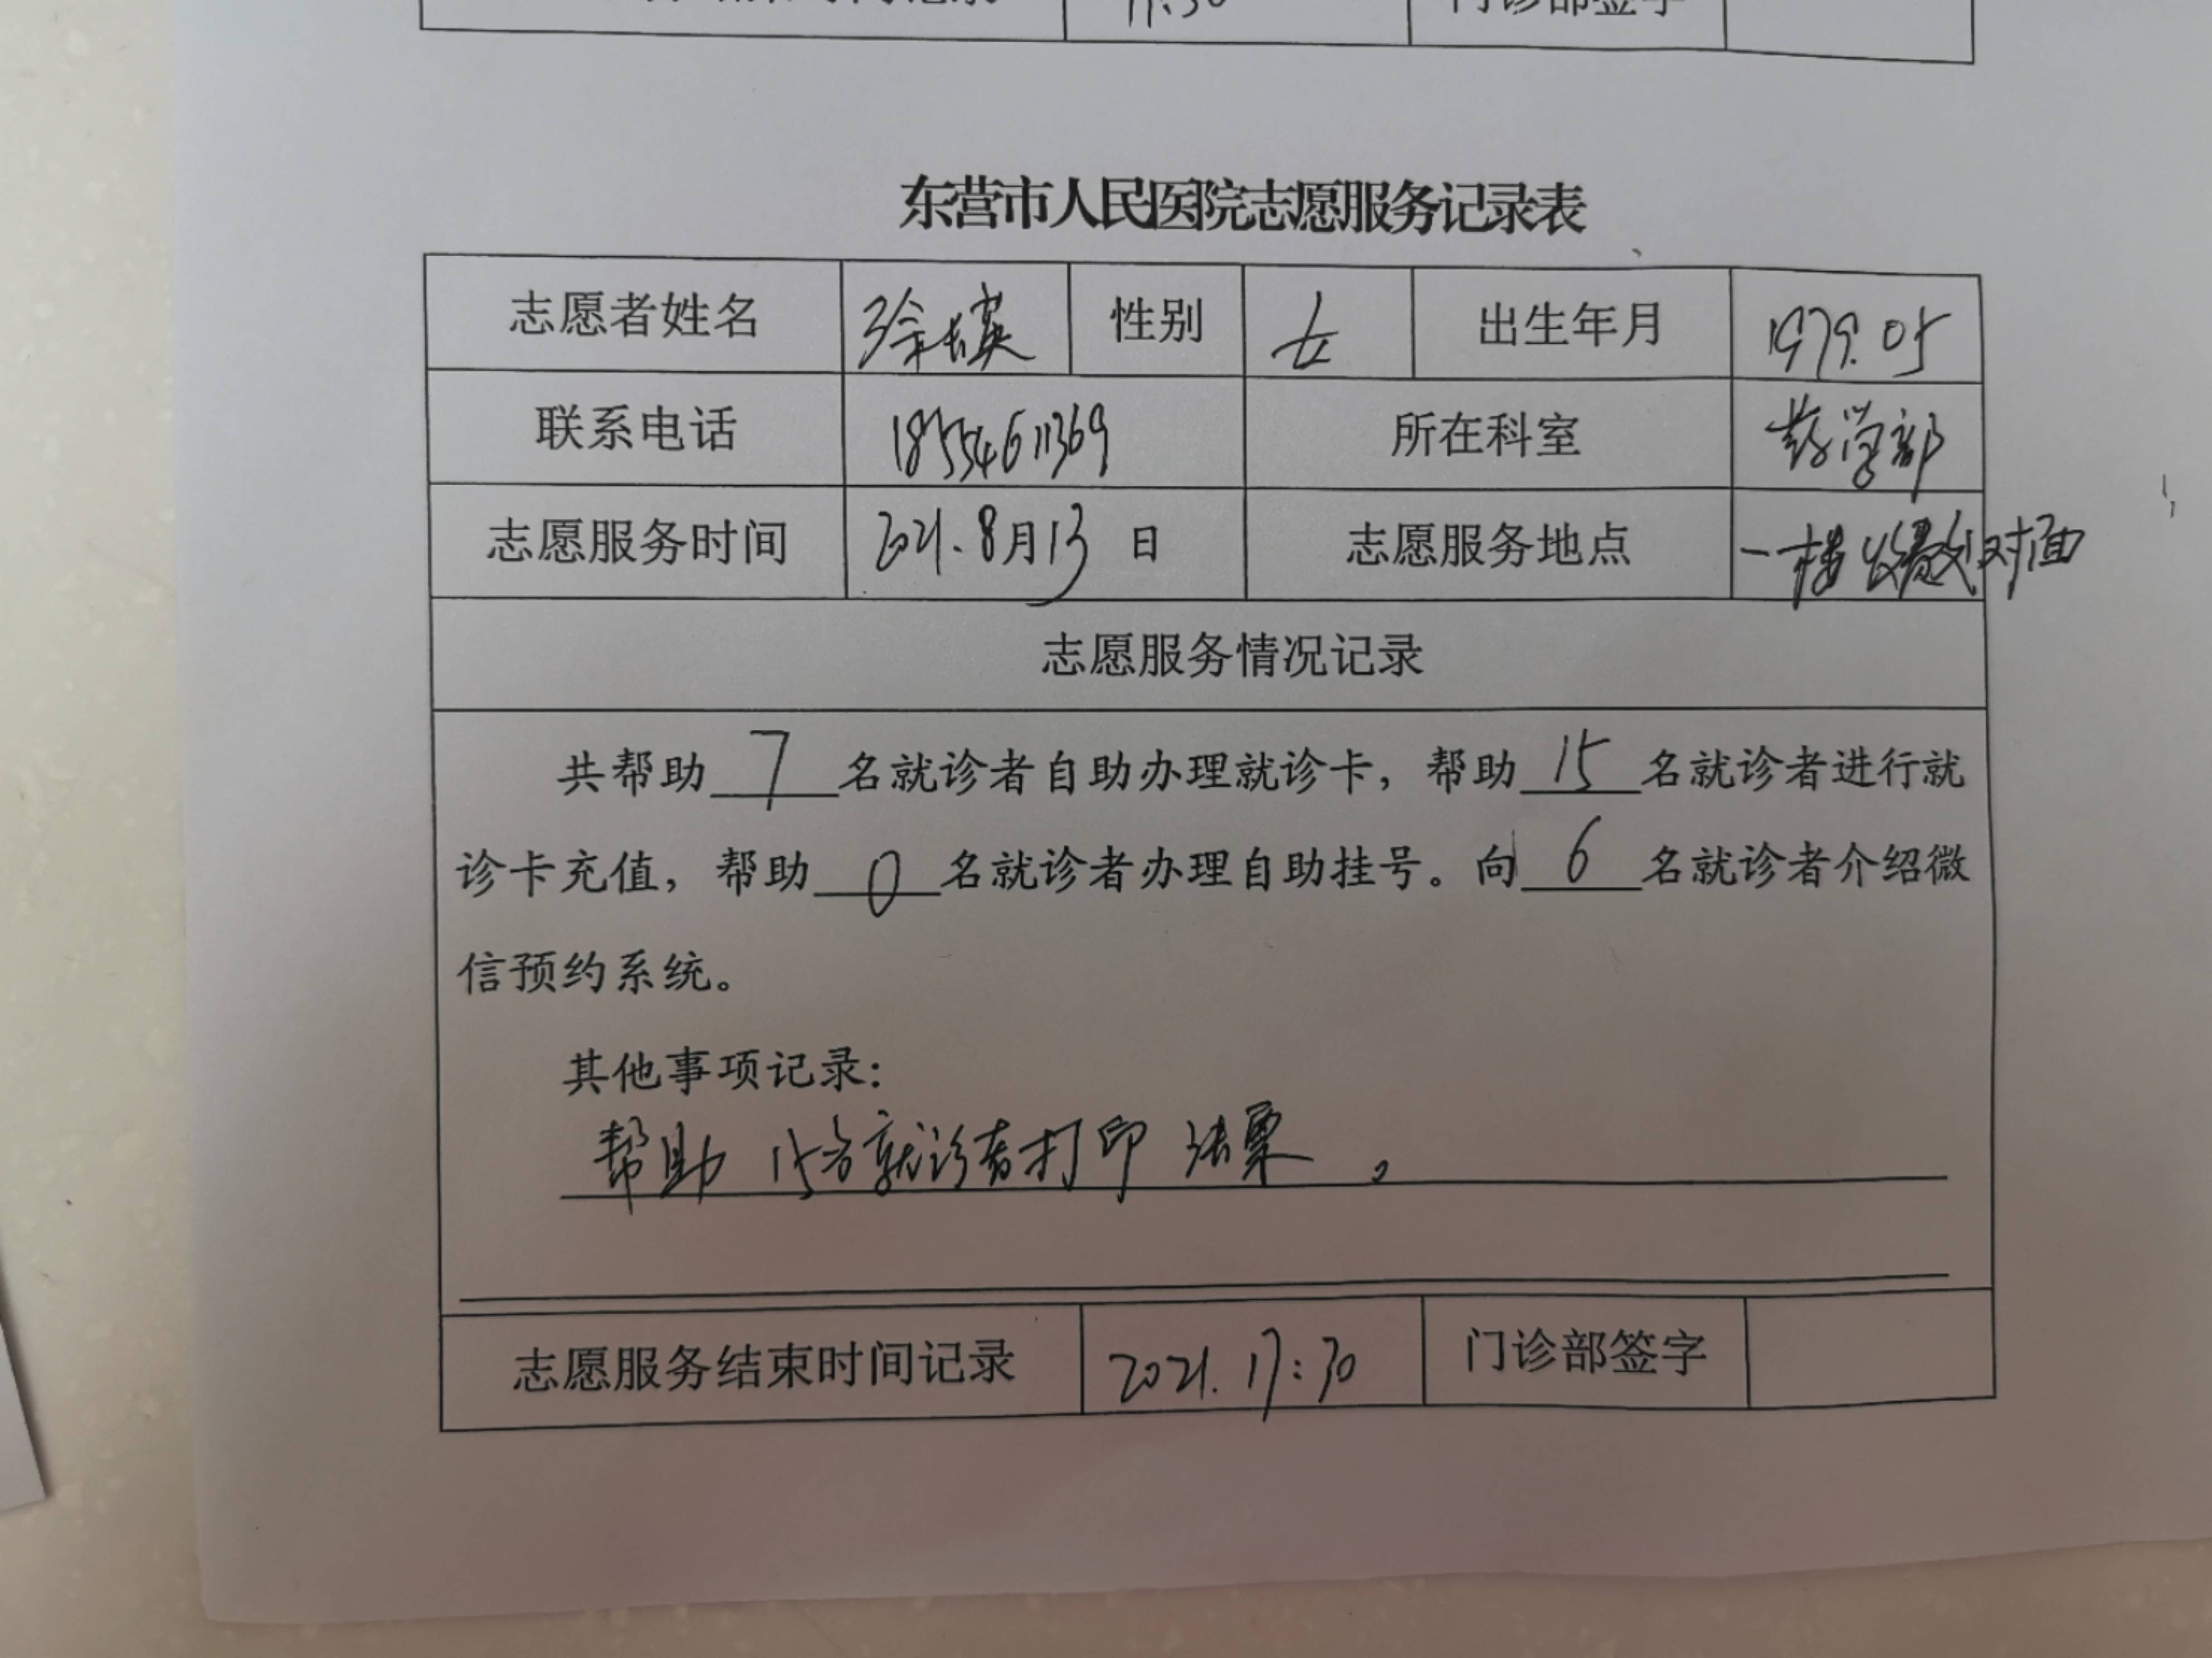 17:30 门诊部签字
东营市人民医院志愿服务记录表
志愿者姓名 徐长英 性别 女 出生年月 1979.05
联系电话 18554611369 所在科室 药学部
志愿服务时间 2021.8月13日 志愿服务地点 一楼 对面
志愿服务情况记录
共帮助 7 名就诊者自助办理就诊卡，帮助 15 名就诊者进行就
诊卡充值，帮助 0 名就诊者办理自助挂号。向 6 名就诊者介绍微
信预约系统。
其他事项记录：
帮助 15名就诊者打印 结果。
志愿服务结束时间记录 2021.17:30 门诊部签字